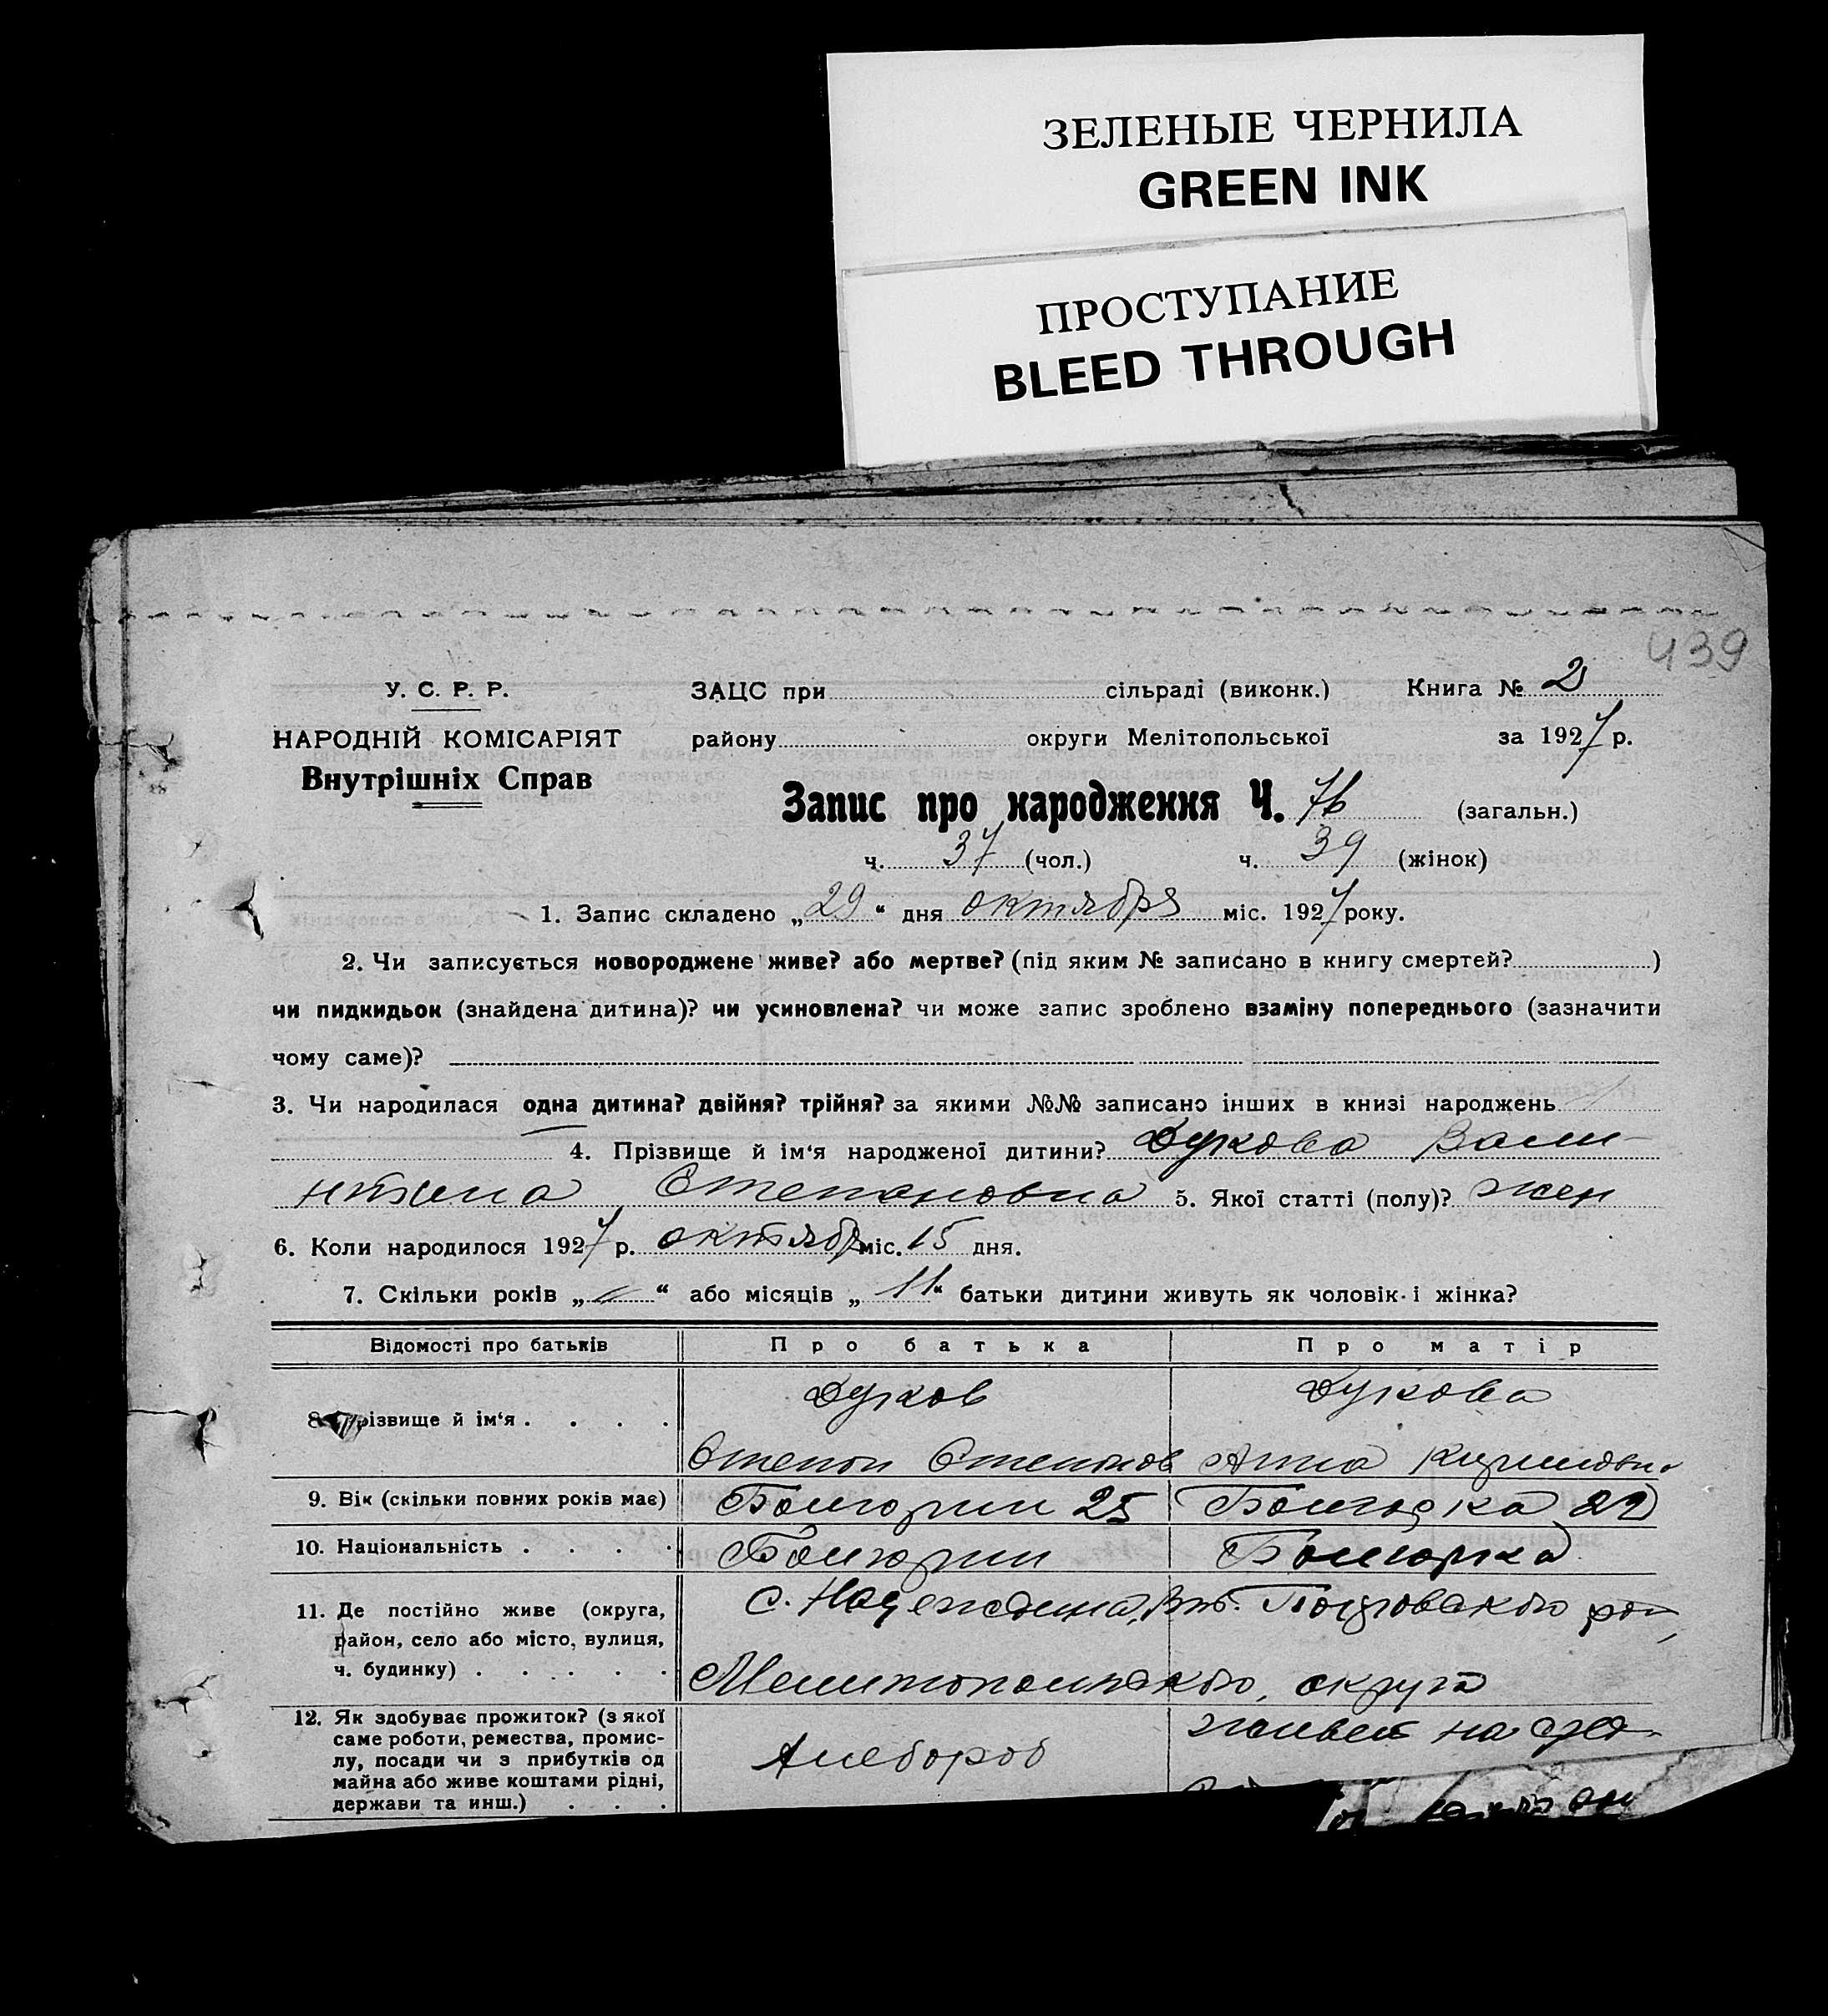 ЗЕЛЕНЫЕ ЧЕРНИЛА
GREEN INK
ПРОСТУПАНИЕ
BLEED THROUGH
439
У. С. Р. Р. ЗАЦС при сільраді (виконк.) Книга № 2
НАРОДНІЙ КОМІСАРІЯТ району округи Мелітопольської за 1927 р.
Внутрішніх Справ
Запис про народження Ч. 76 (загальн.)
ч. 37 (чол.) ч. 39 (жінок)
1. Запис складено „29“ дня октября міс. 1927 року.
2. Чи записується новороджене живе? або мертве? (під яким № записано в книгу смертей? )
чи пидкидьок (знайдена дитина)? чи усиновлена? чи може запис зроблено взаміну попереднього (зазначити
чому саме)?
3. Чи народилася одна дитина? двійня? трійня? за якими №№ записано інших в книзі народжень
4. Прізвище й ім‘я народженої дитини? Дукова Вали-
нтина Степановна 5. Якої статті (полу)? жен
6. Коли народилося 1927 р. октябр міс. 15 дня.
7. Скільки років „ “ або місяців „11“ батьки дитини живуть як чоловік і жінка?
Відомості про батьків Про батька Про матір
8. Прізвище й ім‘я . . . . Дуков Дукова
Степан Степанов Анна
9. Вік (скільки повних років має) Болгарин 25 Болгарка 22
10. Національність . . . . Болгарин Болгарка
11. Де постійно живе (округа, район, село або місто, вулиця, ч. будинку) . . . . . С. Надеждина, рай,
Мелитопольского, округа
12. Як здобуває прожиток? (з якої саме роботи, ремества, промислу, посади чи з прибутків од майна або живе коштами рідні, держави та инш.) . . . Хлебороб живет на сред-